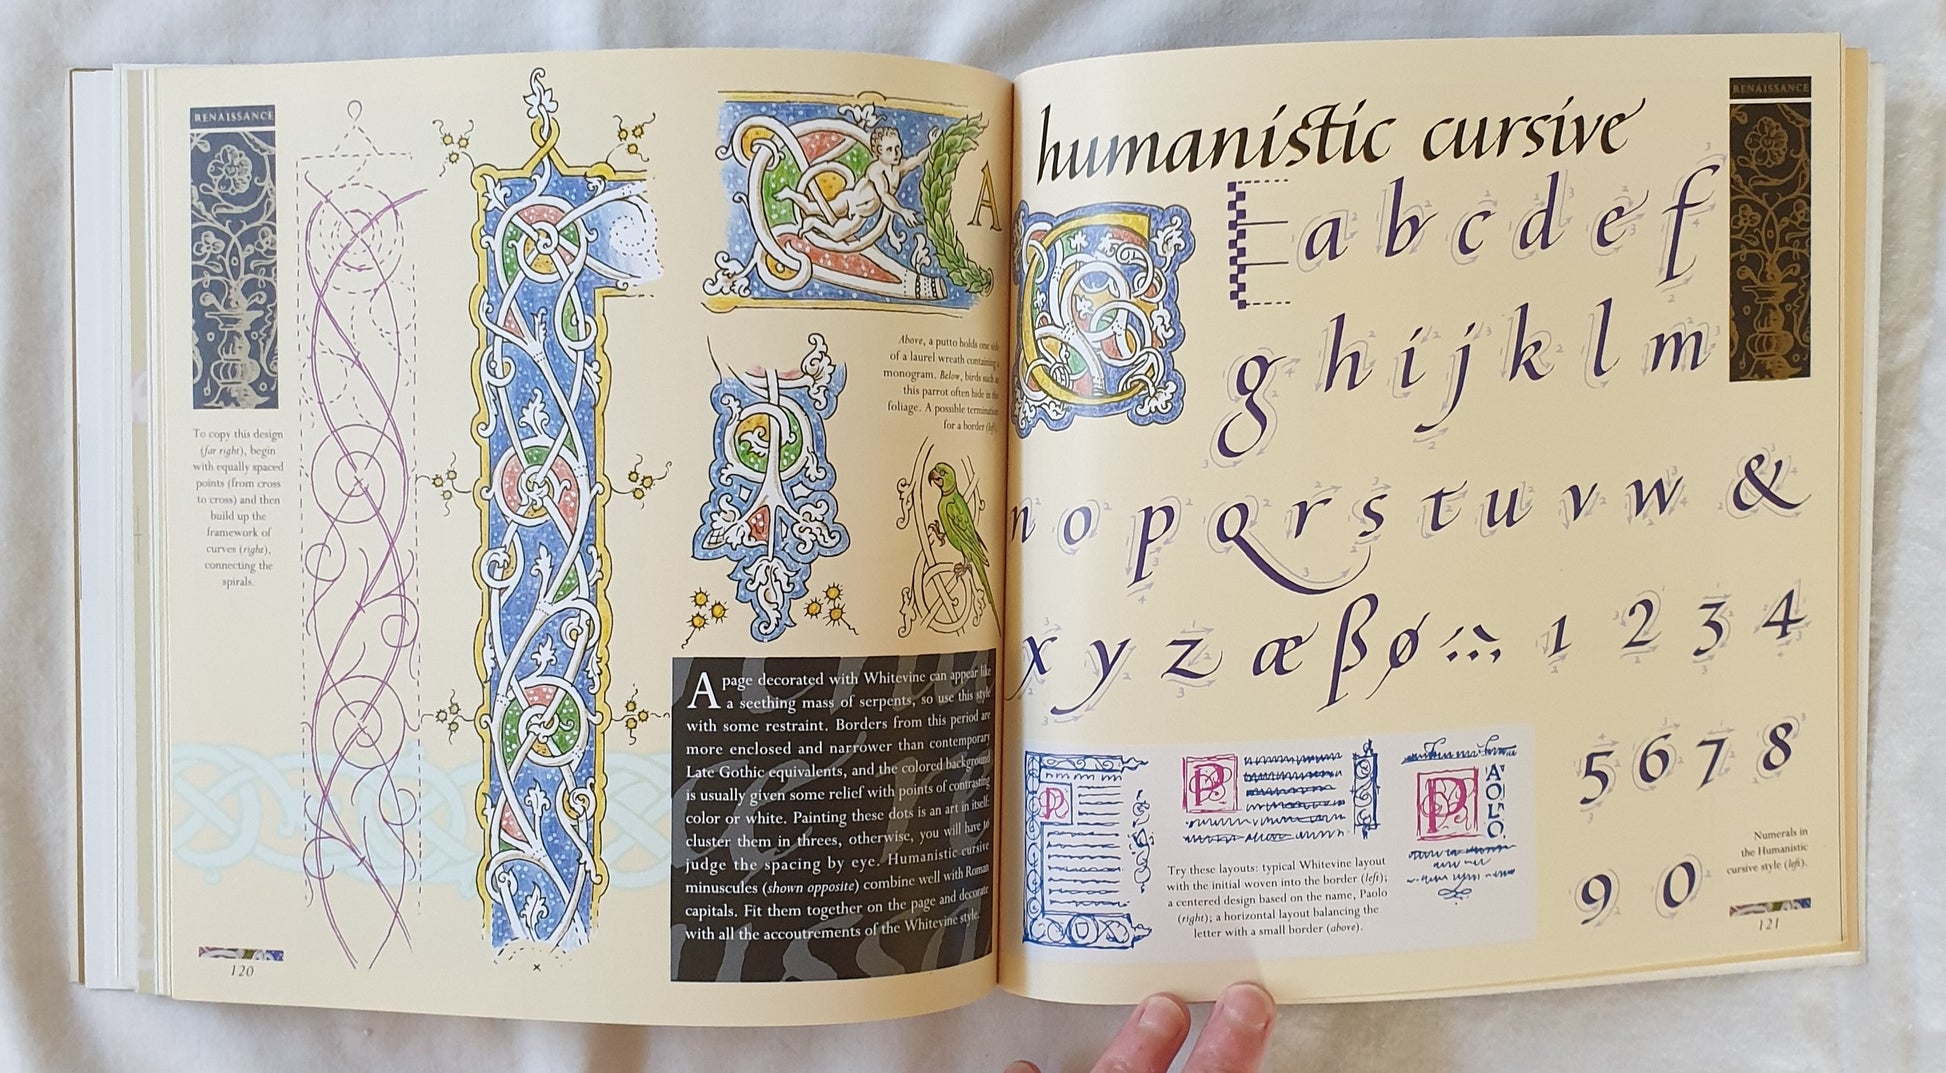 RENAISSANCE
To copy this design
(far right), begin
with equally spaced
points (from cross
to cross) and then
build up the
framework of
curves (right),
connecting the
spirals.
A
Above, a putto holds one side
of a laurel wreath containing a
monogram. Below, birds such as
this parrot often hide in the
foliage. A possible termination
for a border (left).
A page decorated with Whitevine can appear like
a seething mass of serpents, so use this style
with some restraint. Borders from this period are
more enclosed and narrower than contemporary
Late Gothic equivalents, and the colored background
is usually given some relief with points of contrasting
color or white. Painting these dots is an art in itself:
cluster them in threes, otherwise, you will have to
judge the spacing by eye. Humanistic cursive
minuscules (shown opposite) combine well with Roman
capitals. Fit them together on the page and decorate
with all the accoutrements of the Whitevine style.
120
humanistic cursive
RENAISSANCE
a b c d e f
g h i j k l m
n o p q r s t u v w &
x y z æ ß ø 1 2 3 4
5 6 7 8
9 0
P
P
P
AOLO
Try these layouts: typical Whitevine layout
with the initial woven into the border (left);
a centered design based on the name, Paolo
(right); a horizontal layout balancing the
letter with a small border (above).
Numerals in
the Humanistic
cursive style (left).
121